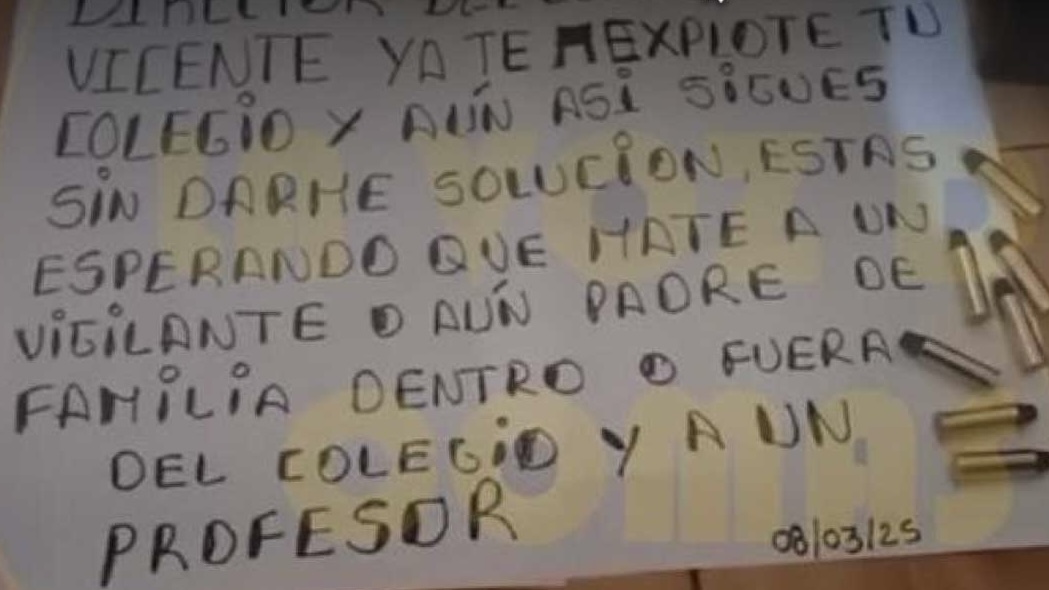 DIRECTOR DEL
VICENTE YA TE EXPLOTE TU
COLEGIO Y AÚN ASI SIGUES
SIN DARME SOLUCION, ESTAS
ESPERANDO QUE MATE A UN
VIGILANTE O AÚN PADRE DE
FAMILIA DENTRO O FUERA
DEL COLEGIO Y A UN
PROFESOR
08/03/25
LA VOZ D
COMAS